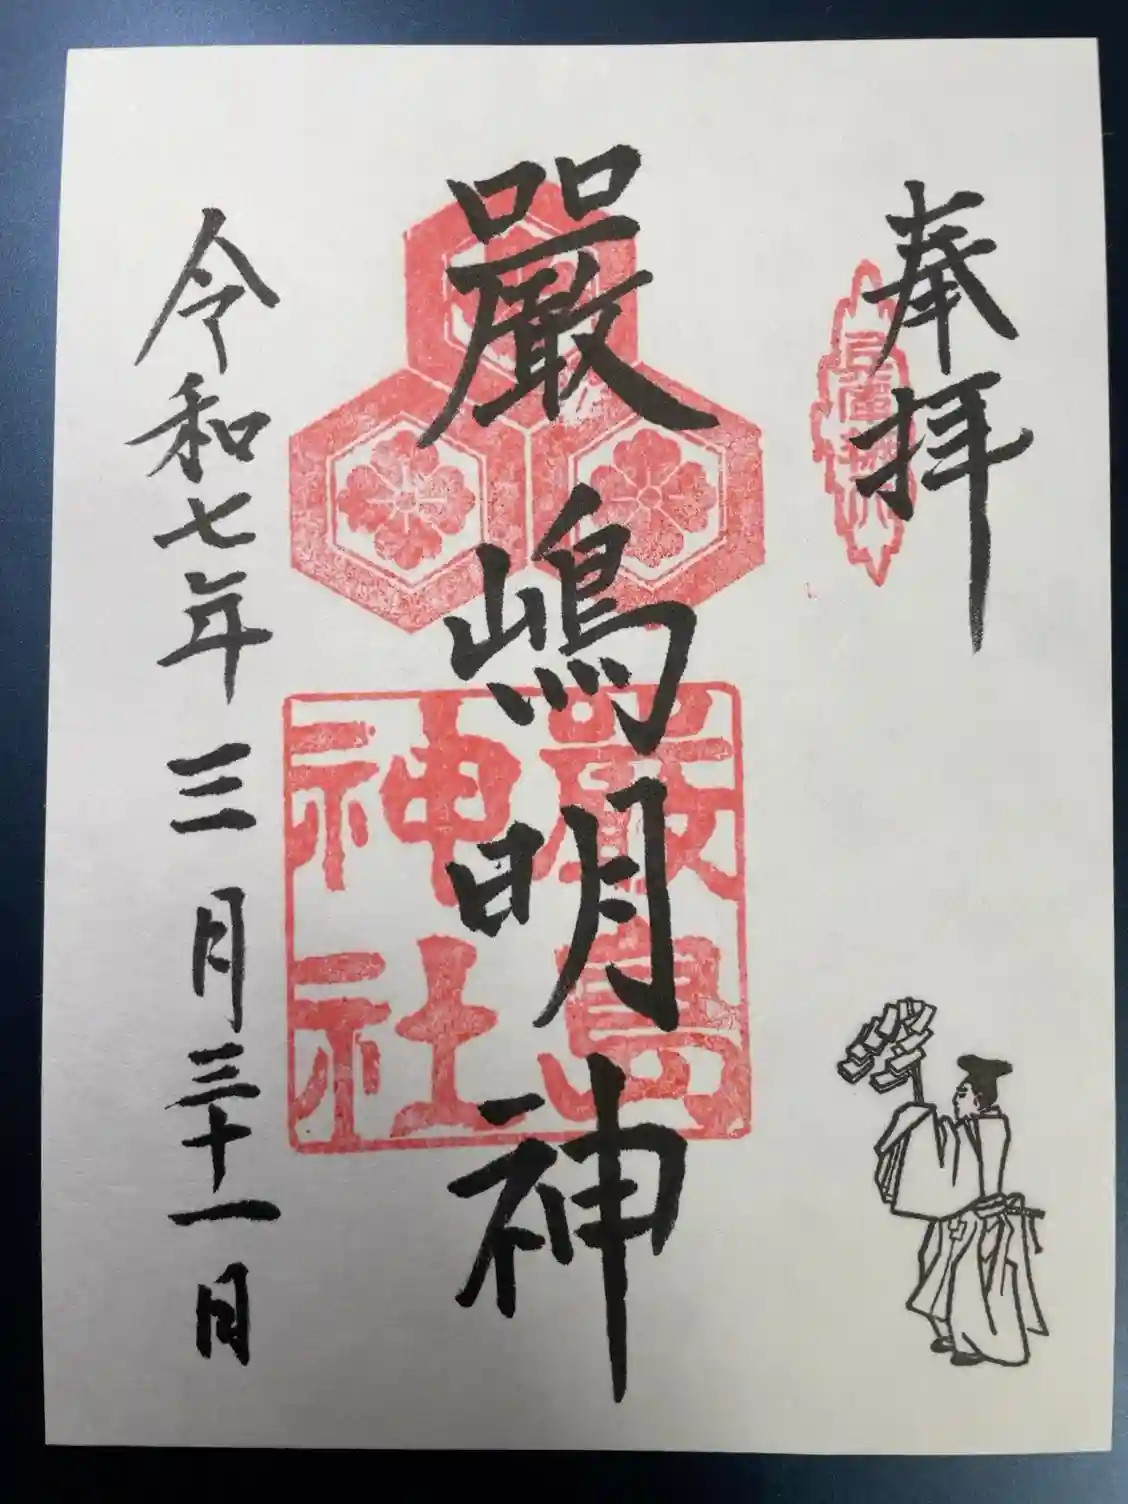 奉拝
嚴嶋明神
嚴島
神社
令和七年三月三十一日